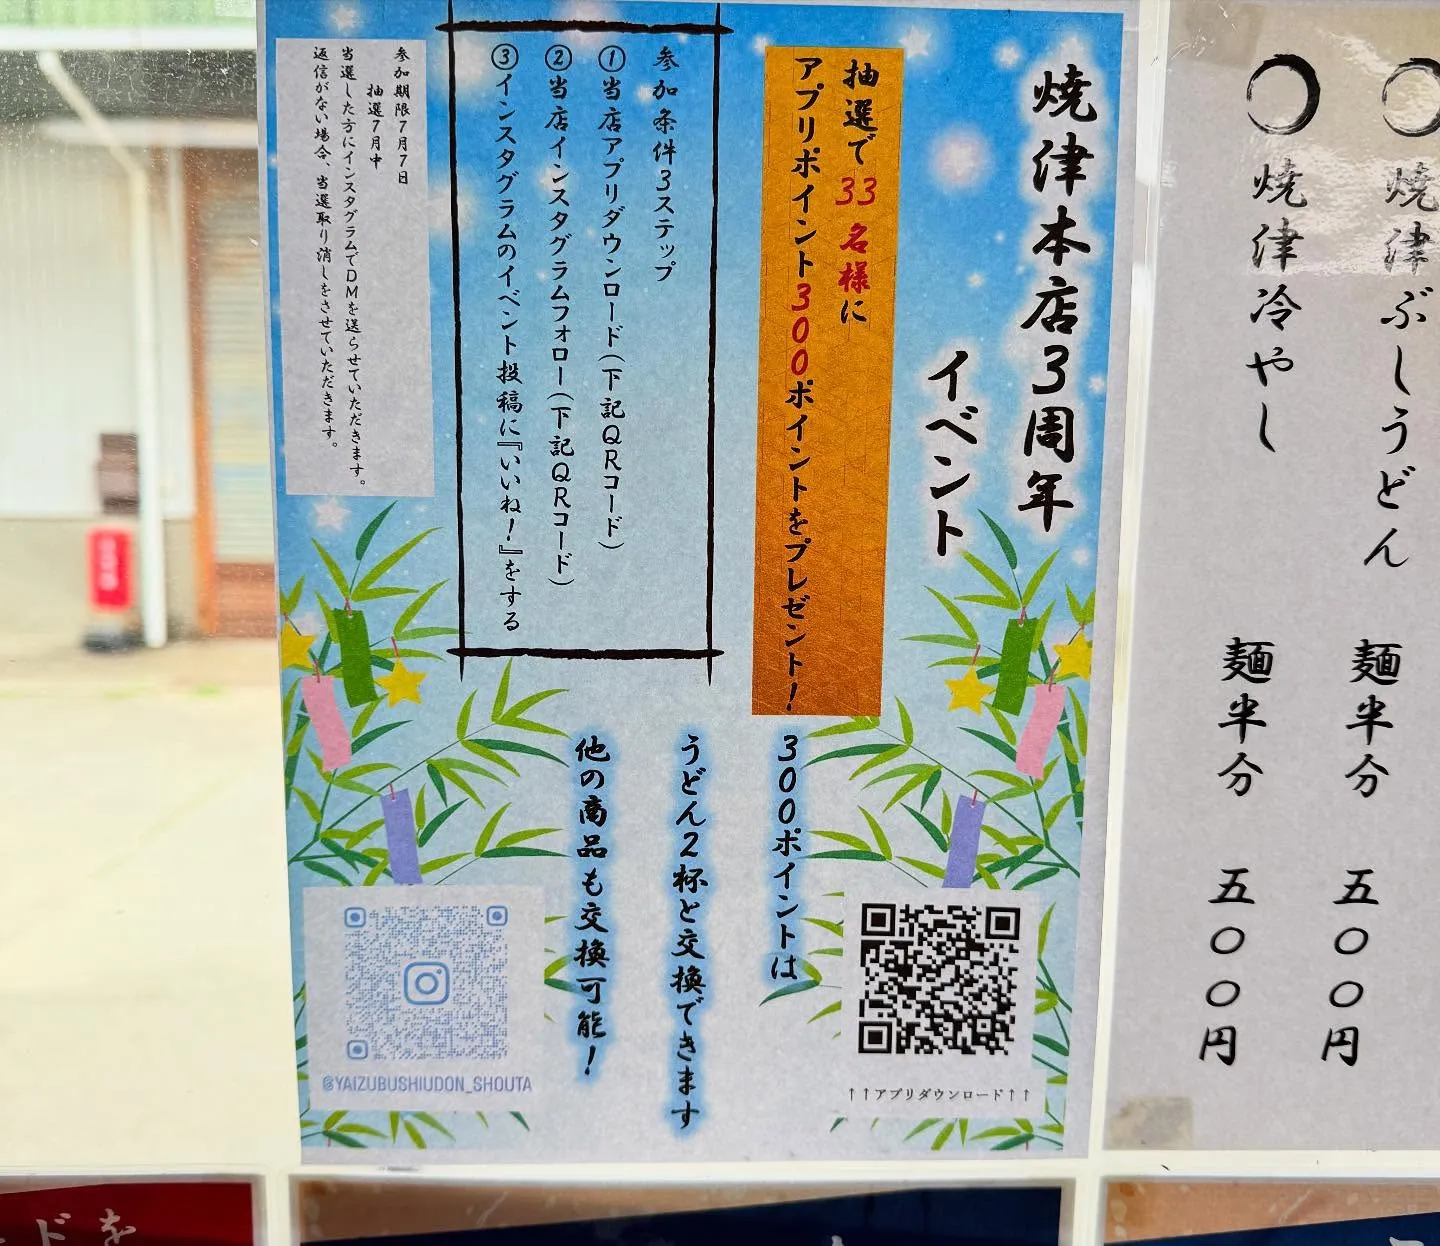 〇焼津ぶしうどん 麺半分 五〇〇円
〇焼津冷やし 麺半分 五〇〇円
焼津本店3周年
イベント
抽選で33名様に
アプリポイント300ポイントをプレゼント!
参加条件3ステップ
①当店アプリダウンロード(下記QRコード)
②当店インスタグラムフォロー(下記QRコード)
③インスタグラムのイベント投稿に『いいね!』をする
参加期限7月7日
抽選7月中
当選した方にインスタグラムでDMを送らせていただきます。
返信がない場合、当選取り消しをさせていただきます。
300ポイントは
うどん2杯と交換できます
他の商品も交換可能!
↑↑アプリダウンロード↑↑
@YAIZUBUSHIUDON_SHOUTA
ドを